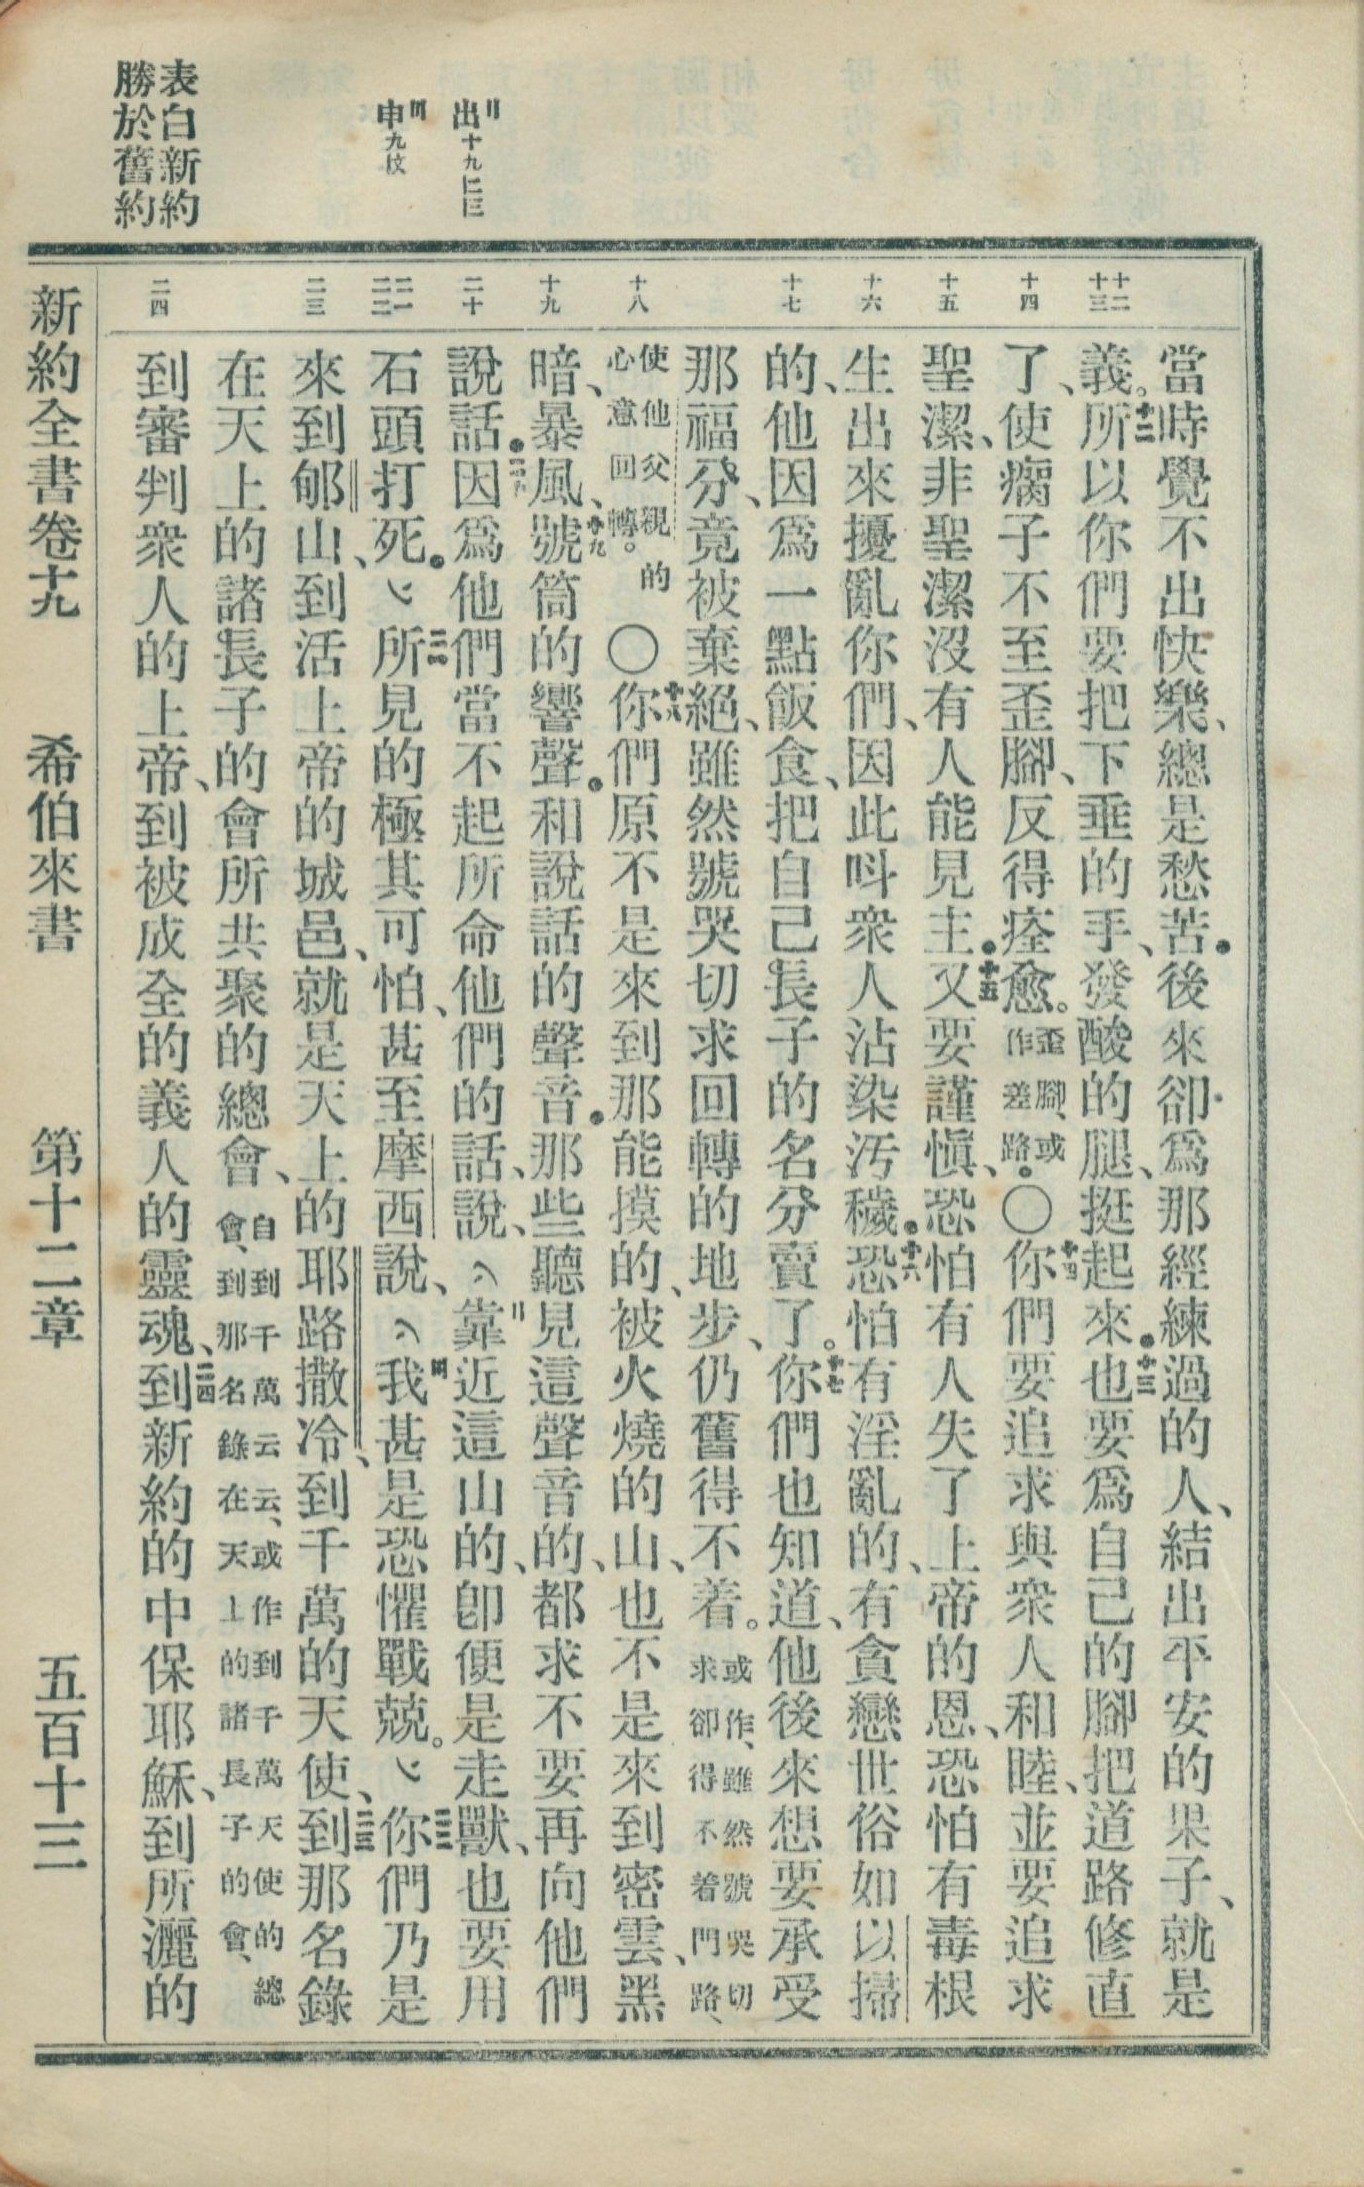 出十九12三
申九19
表白新約
勝於舊約
十二
十三
十四
十五
十六
十七
十八
十九
二十
二一
二二
二三
二四
當時覺不出快樂、總是愁苦．後來卻爲那經練過的人、結出平安的果子、就是
義。十二所以你們要把下垂的手、發酸的腿、挺起來．十三也要爲自己的腳把道路修直
了、使瘸子不至歪腳、反得痊愈。歪腳、或作差路。〇十四你們要追求與衆人和睦、並要追求
聖潔、非聖潔沒有人能見主．十五又要謹愼、恐怕有人失了上帝的恩、恐怕有毒根
生出來擾亂你們、因此呌衆人沾染汚穢．十六恐怕有淫亂的、有貪戀世俗如以掃
的、他因爲一點飯食、把自己長子的名分賣了。十七你們也知道、他後來想要承受
那福分、竟被棄絕、雖然號哭切求回轉的地步、仍舊得不着。或作、雖然號哭切求卻得不着門路、
使他父親的心意回轉。〇十八你們原不是來到那能摸的、被火燒的山、也不是來到密雲、黑
暗、暴風、十九號筒的響聲．和說話的聲音．那些聽見這聲音的、都求不要再向他們
說話．二十因爲他們當不起所命他們的話、說、靠近這山的、卽便是走獸、也要用
石頭打死．二一所見的極其可怕、甚至摩西說、我甚是恐懼戰兢。二二你們乃是
來到郇山、到活上帝的城邑、就是天上的耶路撒冷、到千萬的天使、二三到那名錄
在天上的諸長子的會所共聚的總會、自到千萬云云、或作到千萬天使的總會、到那名錄在天上的諸長子的會、
到審判衆人的上帝、到被成全的義人的靈魂、二四到新約的中保耶穌、到所灑的
新約全書卷十九 希伯來書 第十二章 五百十三